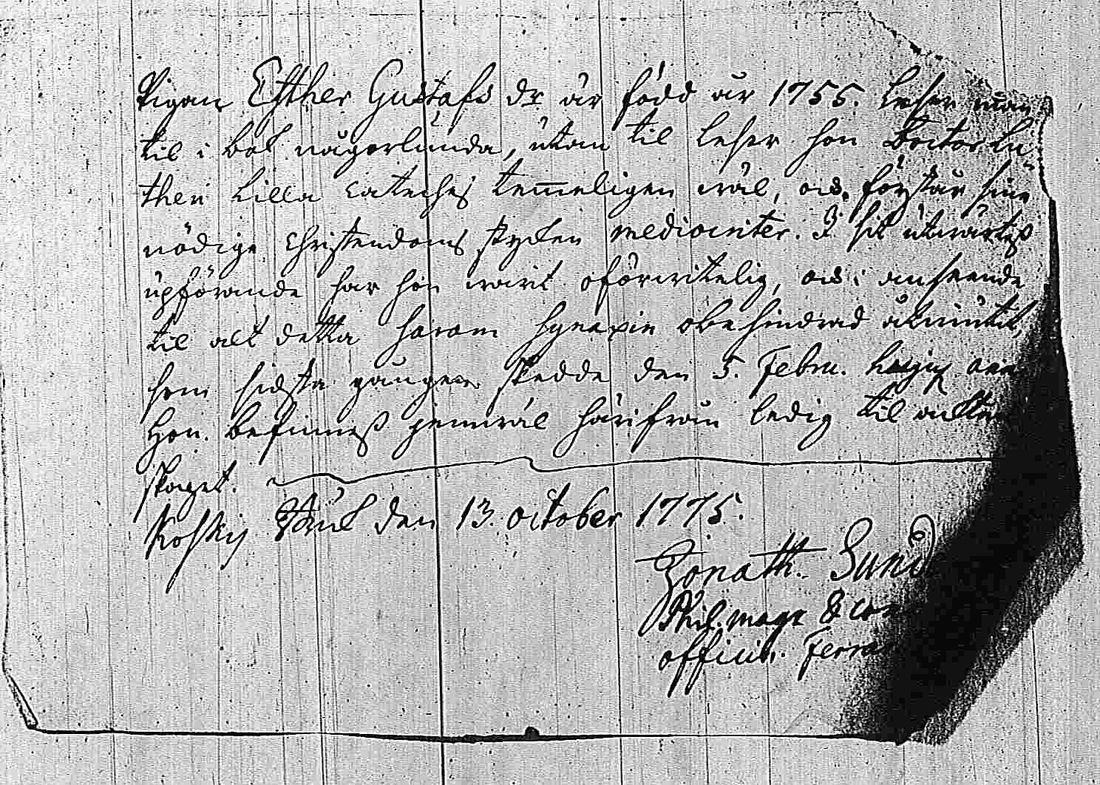 Pigan Esther Gustafs dr är född år 1755. Läser innan
til i bok någorlunda, utan til läser hon Doctor Lu-
theri Lilla Cateches temmeligen wäl, och förstår sine
nödige Christendoms stycken mediocriter. I sit utwärtes
upförande har hon warit oförwitelig, och i anseende
til alt detta haram Synaxin obehindrad
som sidsta gången skedde den 5. Febru. hujus
Hon befinnes jemwäl härifrån ledig til
skapet.
Koskis Bruk den 13. october 1775.
Jonath. Sund
Phil. mag. &
officin. Ferra